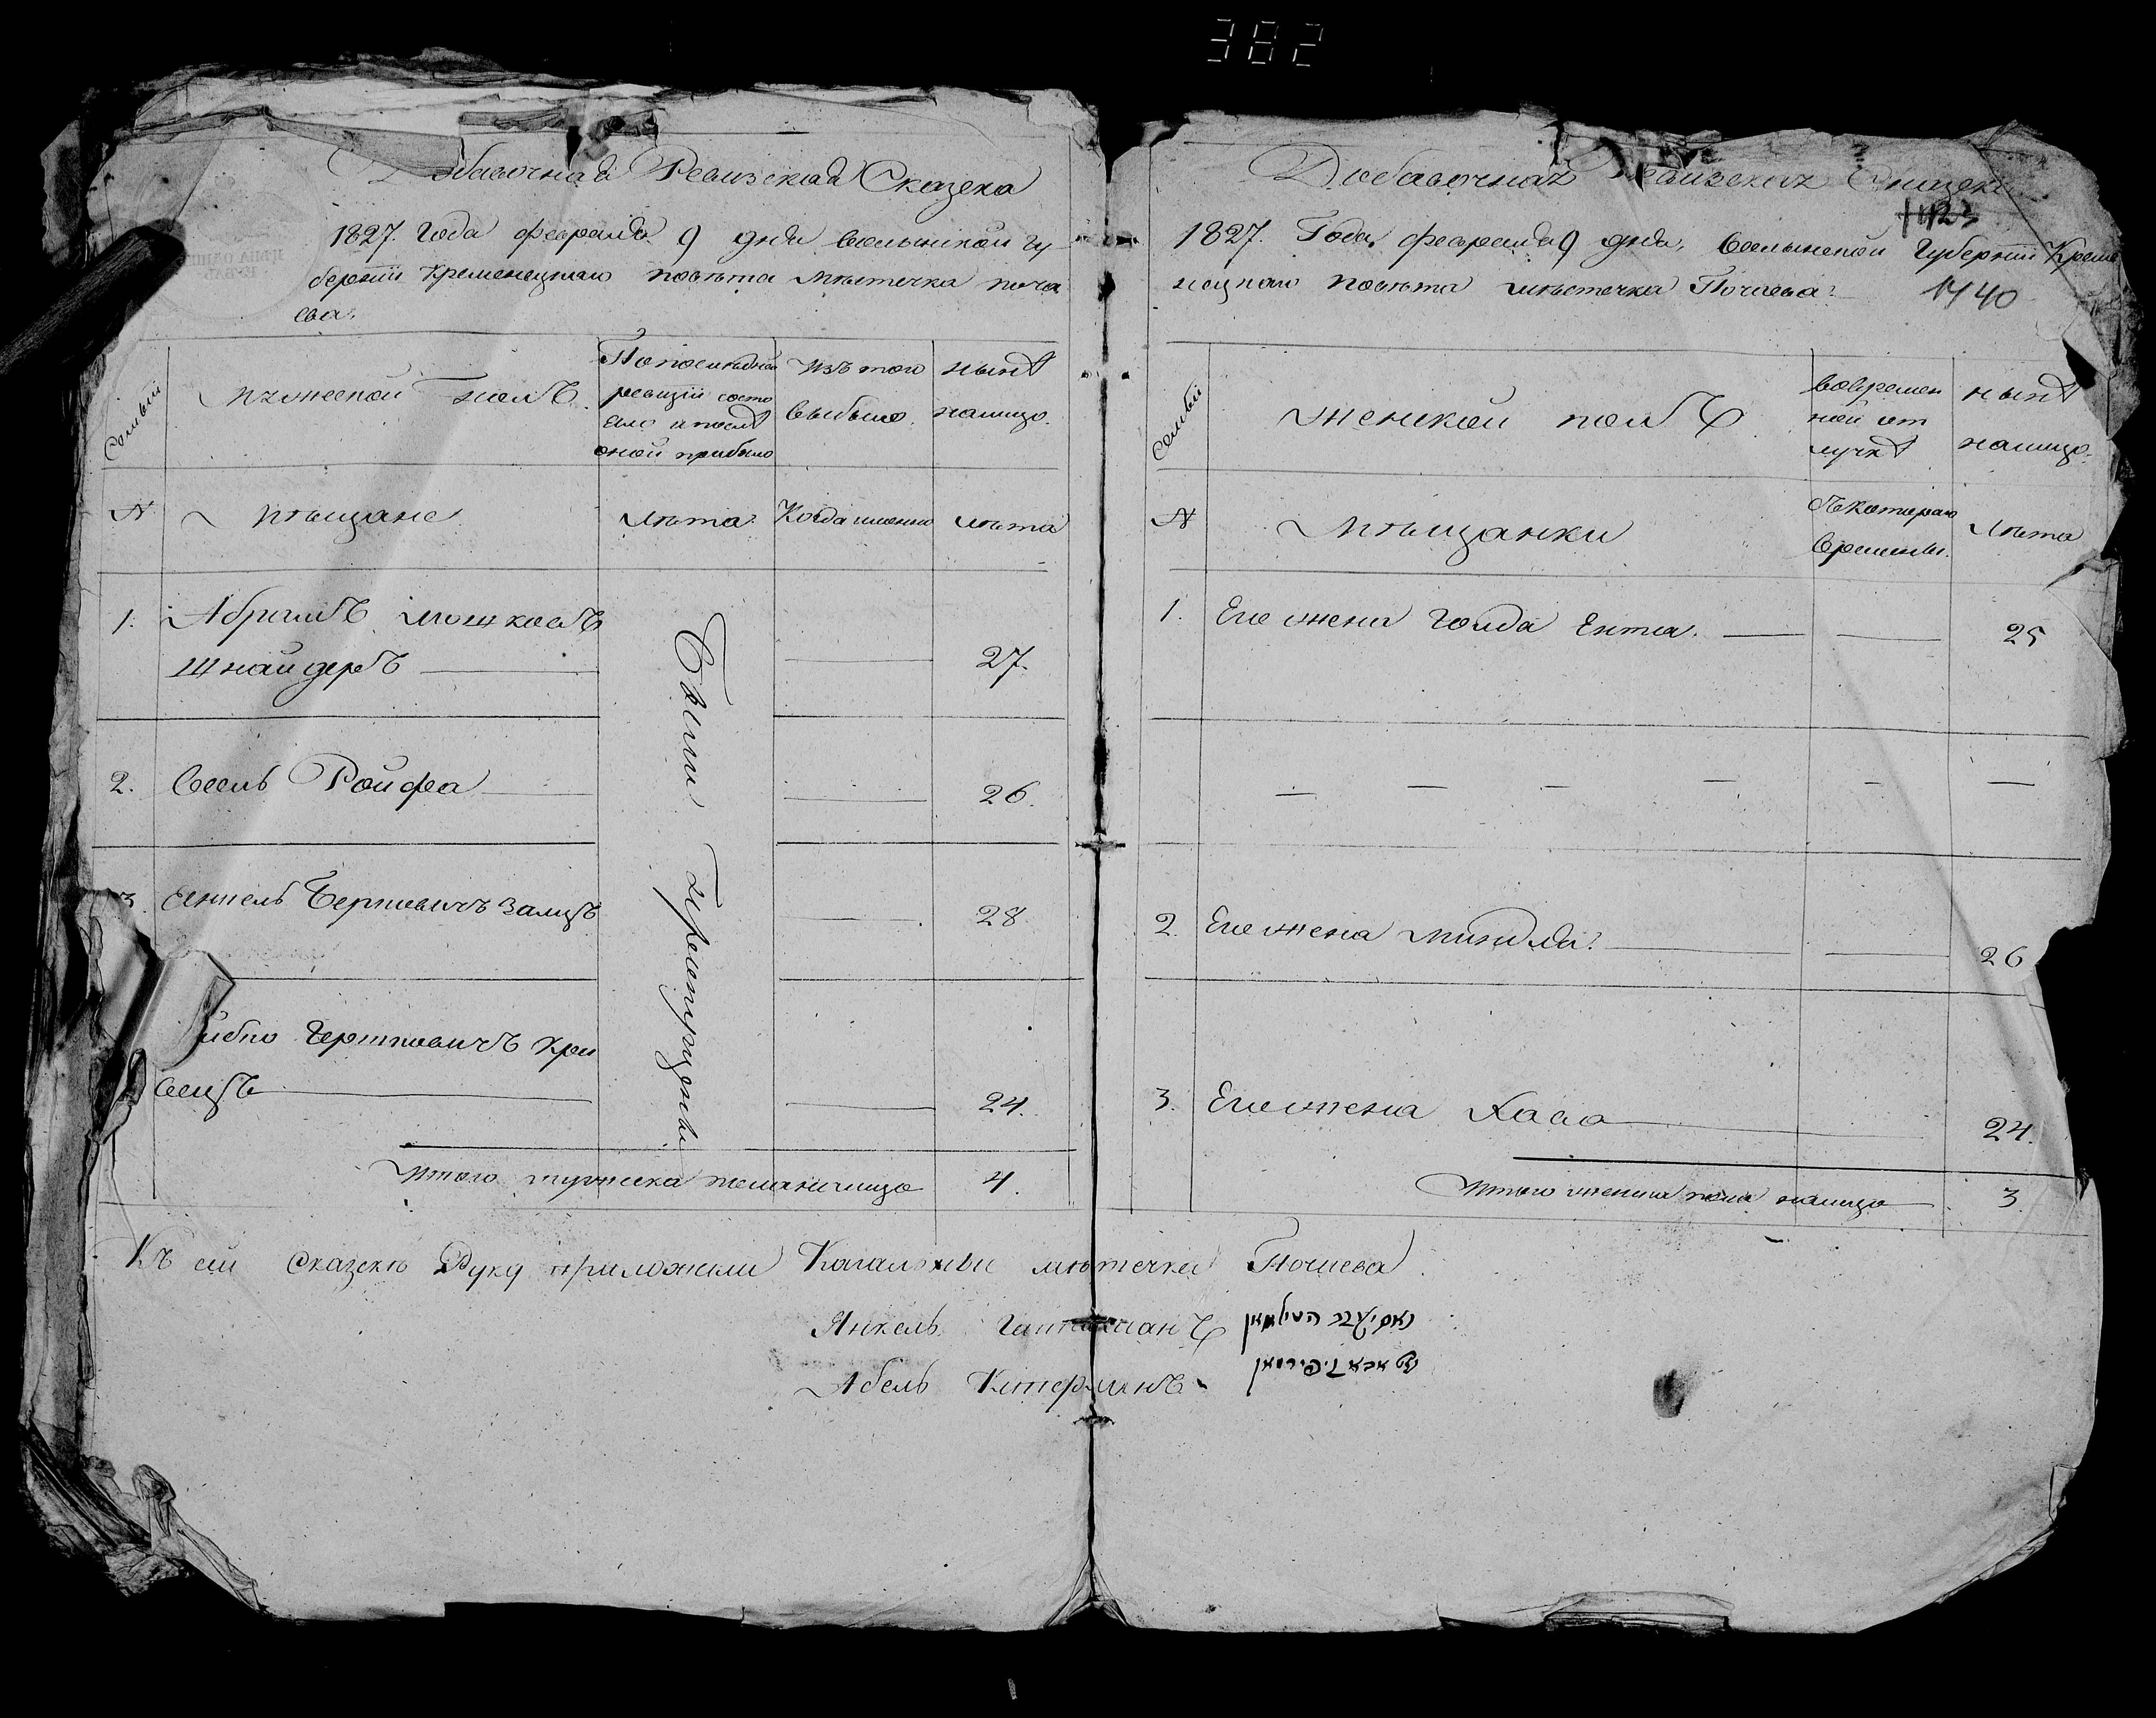 382
Добавочная Ревизская Сказска
1827. Года февраля 9 дня Волынской гу
бернiи Кременецкаго повѣта мѣстечка поча
ева.
Семьи
мужеской полъ
По последней
ревизiи состо
яло и послѣ
оной прибыло
изъ того
выбыло.
нынѣ
налицо.
№
мѣщане
лѣта
Когда именно
лѣта
1.
Абрамъ Мошковъ
Шнайдеръ
27.
2.
Иосль Ройфа
26.
3.
Янкель Берковичъ Залцъ
28
Лейбко Гершковичъ Кри
вецъ
24.
Были пропущены
Итого мужеска пола налицо
4.
Добавочная Ревизская Сказска
1123
1827. Года февраля 9 дня, Волынской Губернiи Креме
нецкаго повѣта мѣстечка Почаева.
1440
Семьи
женской полъ
во времен
ной от
лучкѣ
нынѣ
налицо.
№
мѣщанки
Съ котораго
времени.
Лѣта
1.
Его жена Голда Ента.
25
2.
Его жена Миндля.
26
3.
Его жена Хава
24.
Итого женска пола налицо
3.
Къ сей сказскѣ Руку приложили Кагальные мѣстечка Почаева
Янкель
Абель